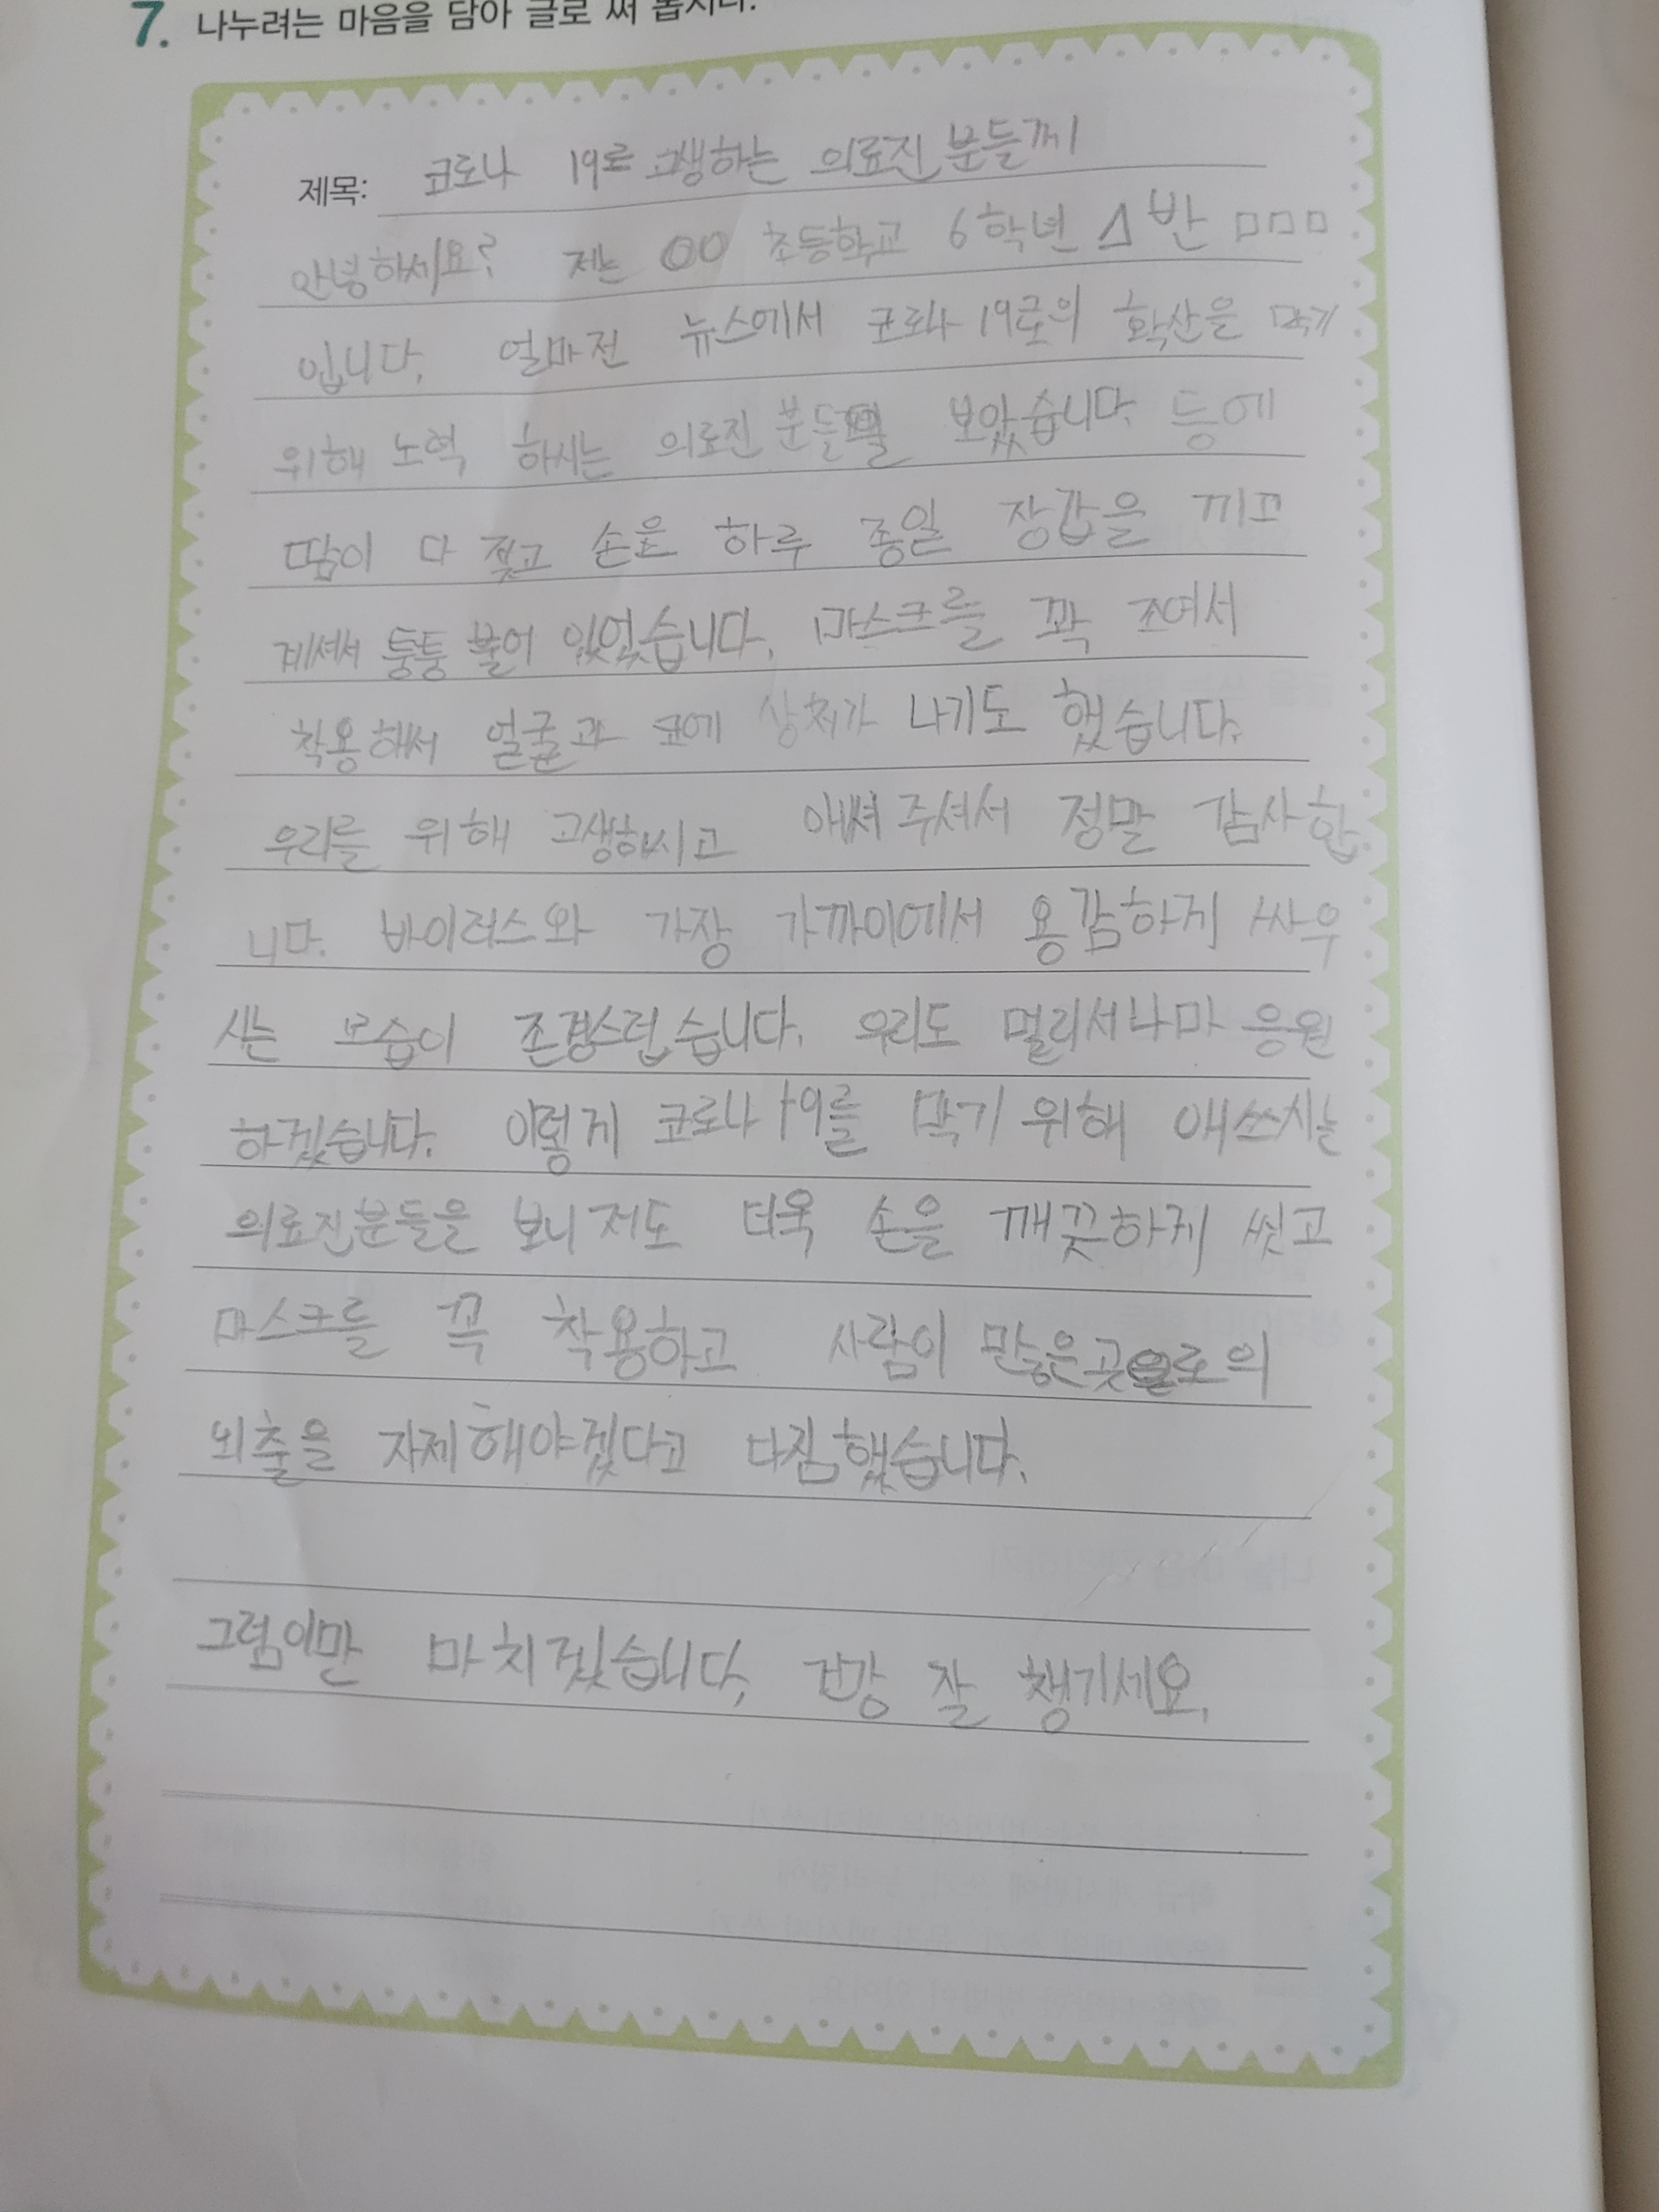 7. 나누려는 마음을 담아 글로 써 봅시다.
제목: 코로나 19로 고생하는 의료진 분들께
안녕하세요? 저는 OO 초등학교 6학년 △반 □□□
입니다. 얼마전 뉴스에서 코로나 19로의 확산을 막기
위해 노력 하시는 의료진 분들을 보았습니다. 등에
땀이 다 젖고 손은 하루 종일 장갑을 끼고
계셔서 퉁퉁 불어 있었습니다. 마스크를 꽉 조여서
착용해서 얼굴과 코에 상처가 나기도 했습니다.
우리를 위해 고생하시고 애써주셔서 정말 감사합
니다. 바이러스와 가장 가까이에서 용감하게 싸우
시는 모습이 존경스럽습니다. 우리도 멀리서나마 응원
하겠습니다. 이렇게 코로나 19를 막기 위해 애쓰시는
의료진분들을 보니 저도 더욱 손을 깨끗하게 씻고
마스크를 꼭 착용하고 사람이 많은곳으로의
외출을 자제해야겠다고 다짐했습니다.
그럼이만 마치겠습니다. 건강 잘 챙기세요.